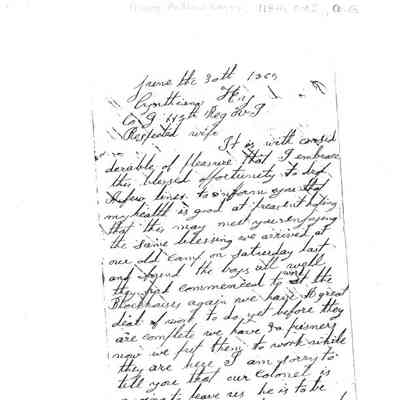 118th O.V.I., Co. G
June the 30th 1863
Cynthiana Ky
Co G 118th Reg OVI
Respected wife
It is with consid
derable of pleasure that I embrace
this blessed oppertunity to drop
A few lines to inform you that
my health is good at preasent hoping
that this may meet you enjoying
the same blessing we arrived at
our old camp on saturday last
and found the boys all well
they had commenced work at the
Blockhouses again we have A great
deal of work to do yet before they
are complete we have prisners
now we put them to work while
they are here I am sorry to
tell you that our colonel is
going to leave us he is to be